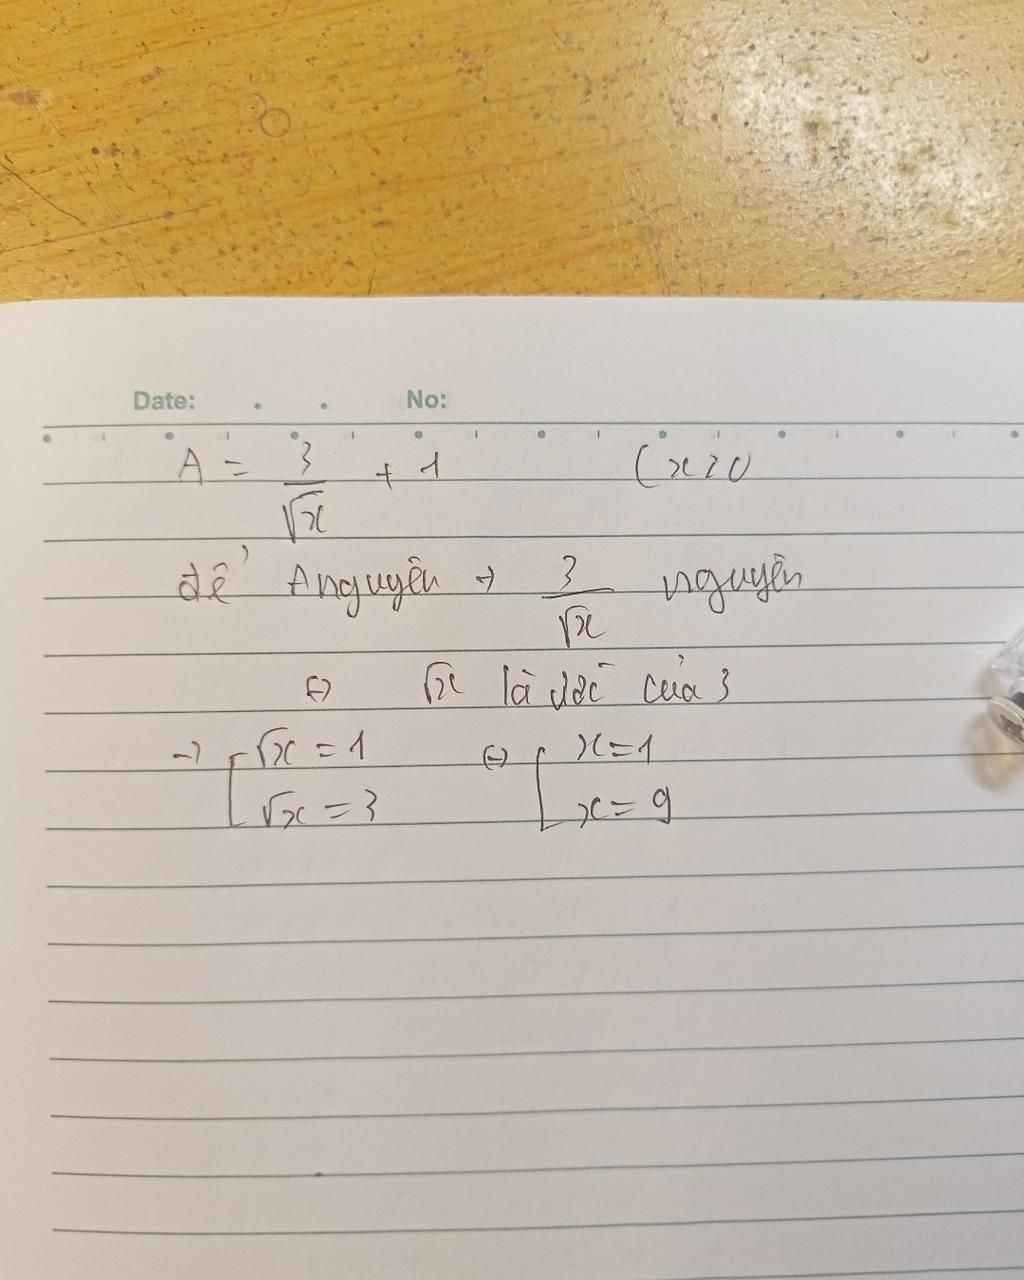 Date: . . No:
A = 3/√x + 1 (x>0
để A nguyên → 3/√x nguyên
⇔ √x là ước của 3
→ [ √x = 1 ⇔ [ x = 1
√x = 3 x = 9